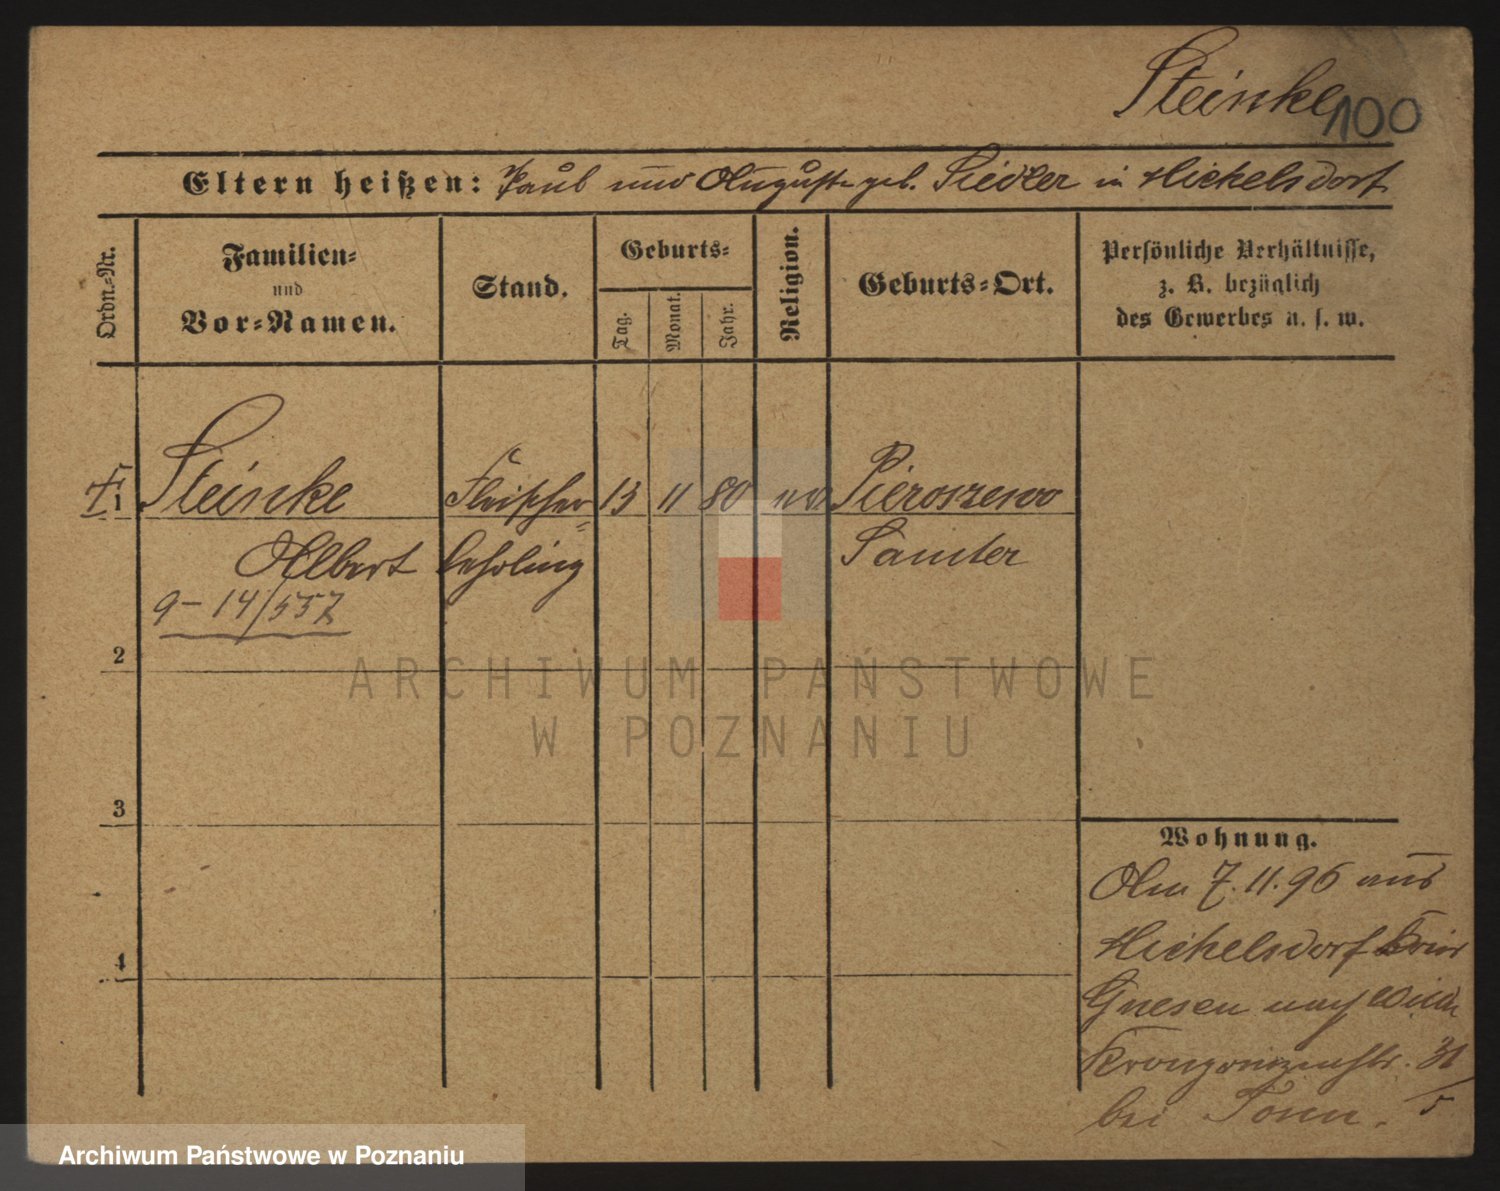 Steinke
100
Eltern heißen: Paul und Auguste geb. Siedler in Michelsdorf
Ordn.-Nr.
Familien-
und
Vor-Namen.
Stand.
Geburts-
Tag.
Monat.
Jahr.
Religion.
Geburts-Ort.
Persönliche Verhältnisse,
z. B. bezüglich
des Gewerbes u. s. w.
1
Steinke
Fleischer
13
11
80
Pieroszewo
Albert
lehrling
Samter
9-14/557
2
ARCHIWUM PAŃSTWOWE
W POZNANIU
3
Wohnung.
Am 7.11.96 aus
4
Michelsdorf Kreis
Gnesen nach Wilda
Kronprinzenstr. 31
bei Tonn. 5
Archiwum Państwowe w Poznaniu